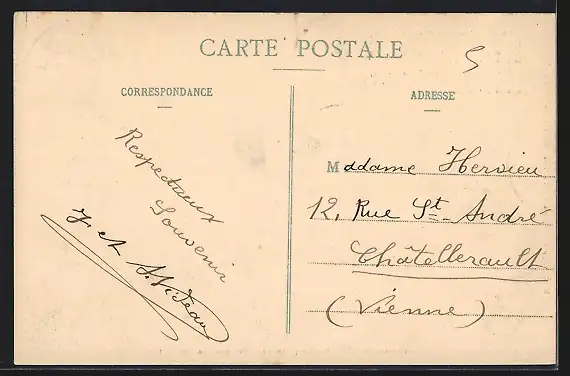 CARTE POSTALE
5
CORRESPONDANCE
ADRESSE
Respectueux
Souvenir
et
Madame Hervieu
12, Rue St. André
Châtellerault
(Vienne)